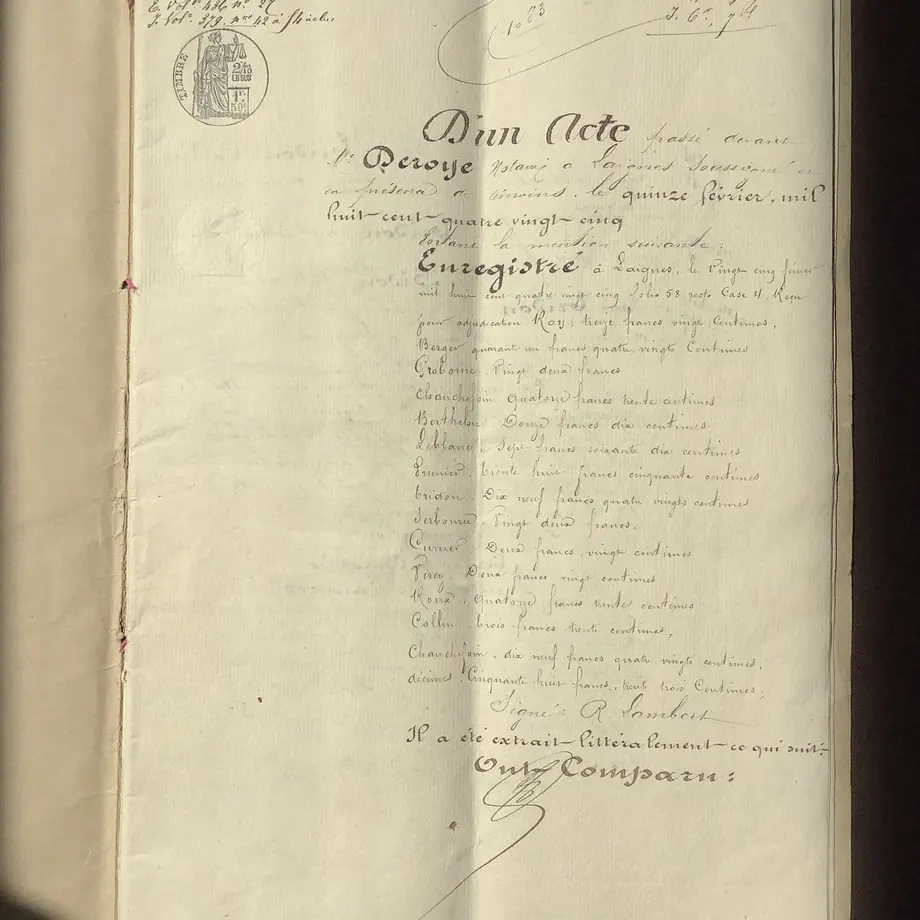 E. Vol. 436 n° 27
J. Vol. 379. n° 42 à Thieles
1083
TIMBRE
2/10
EN SUS
1F.
50C
D'un Acte passé devant
Me Deroye Notaire à Laignes soussigné et
en présence de témoins, le quinze février, mil
huit cent quatre vingt cinq
Portant la mention suivante :
Enregistré à Laignes, le Vingt cinq février
mil huit cent quatre vingt cinq folio 58 recto Case 4. Reçu
pour adjudication Roy : treize francs vingt Centimes,
Berger quarante un francs quatre vingts Centimes
Vingt deux francs
Chanchefoin quatorze francs trente centimes
Berthelon Douze francs dix centimes
Leblanc, Sept francs soixante dix centimes
Trente huit francs cinquante centimes
Bridon, Dix neuf francs quatre vingts centimes
Vingt deux francs,
Deux francs vingt centimes
Virey, Deux francs vingt centimes
Roux, quatorze francs trente centimes
Collin, trois francs trente centimes,
Chanchefoin, dix neuf francs quatre vingts centimes,
décimes, Cinquante huit francs, trente trois Centimes ;
Signé : R. Lambert
Il a été extrait littéralement ce qui suit :
Ont Comparu :